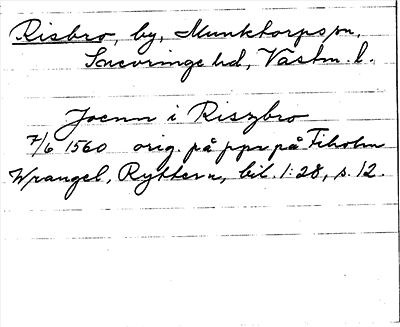 Risbro, by, Munktorps sn,
Snevringe hd, Västm. l.
Joenn i Riszbro
7/6 1560 orig. på ppr på Tiholm
Wrangel, Ryttern, bil. 1:28, s. 12.